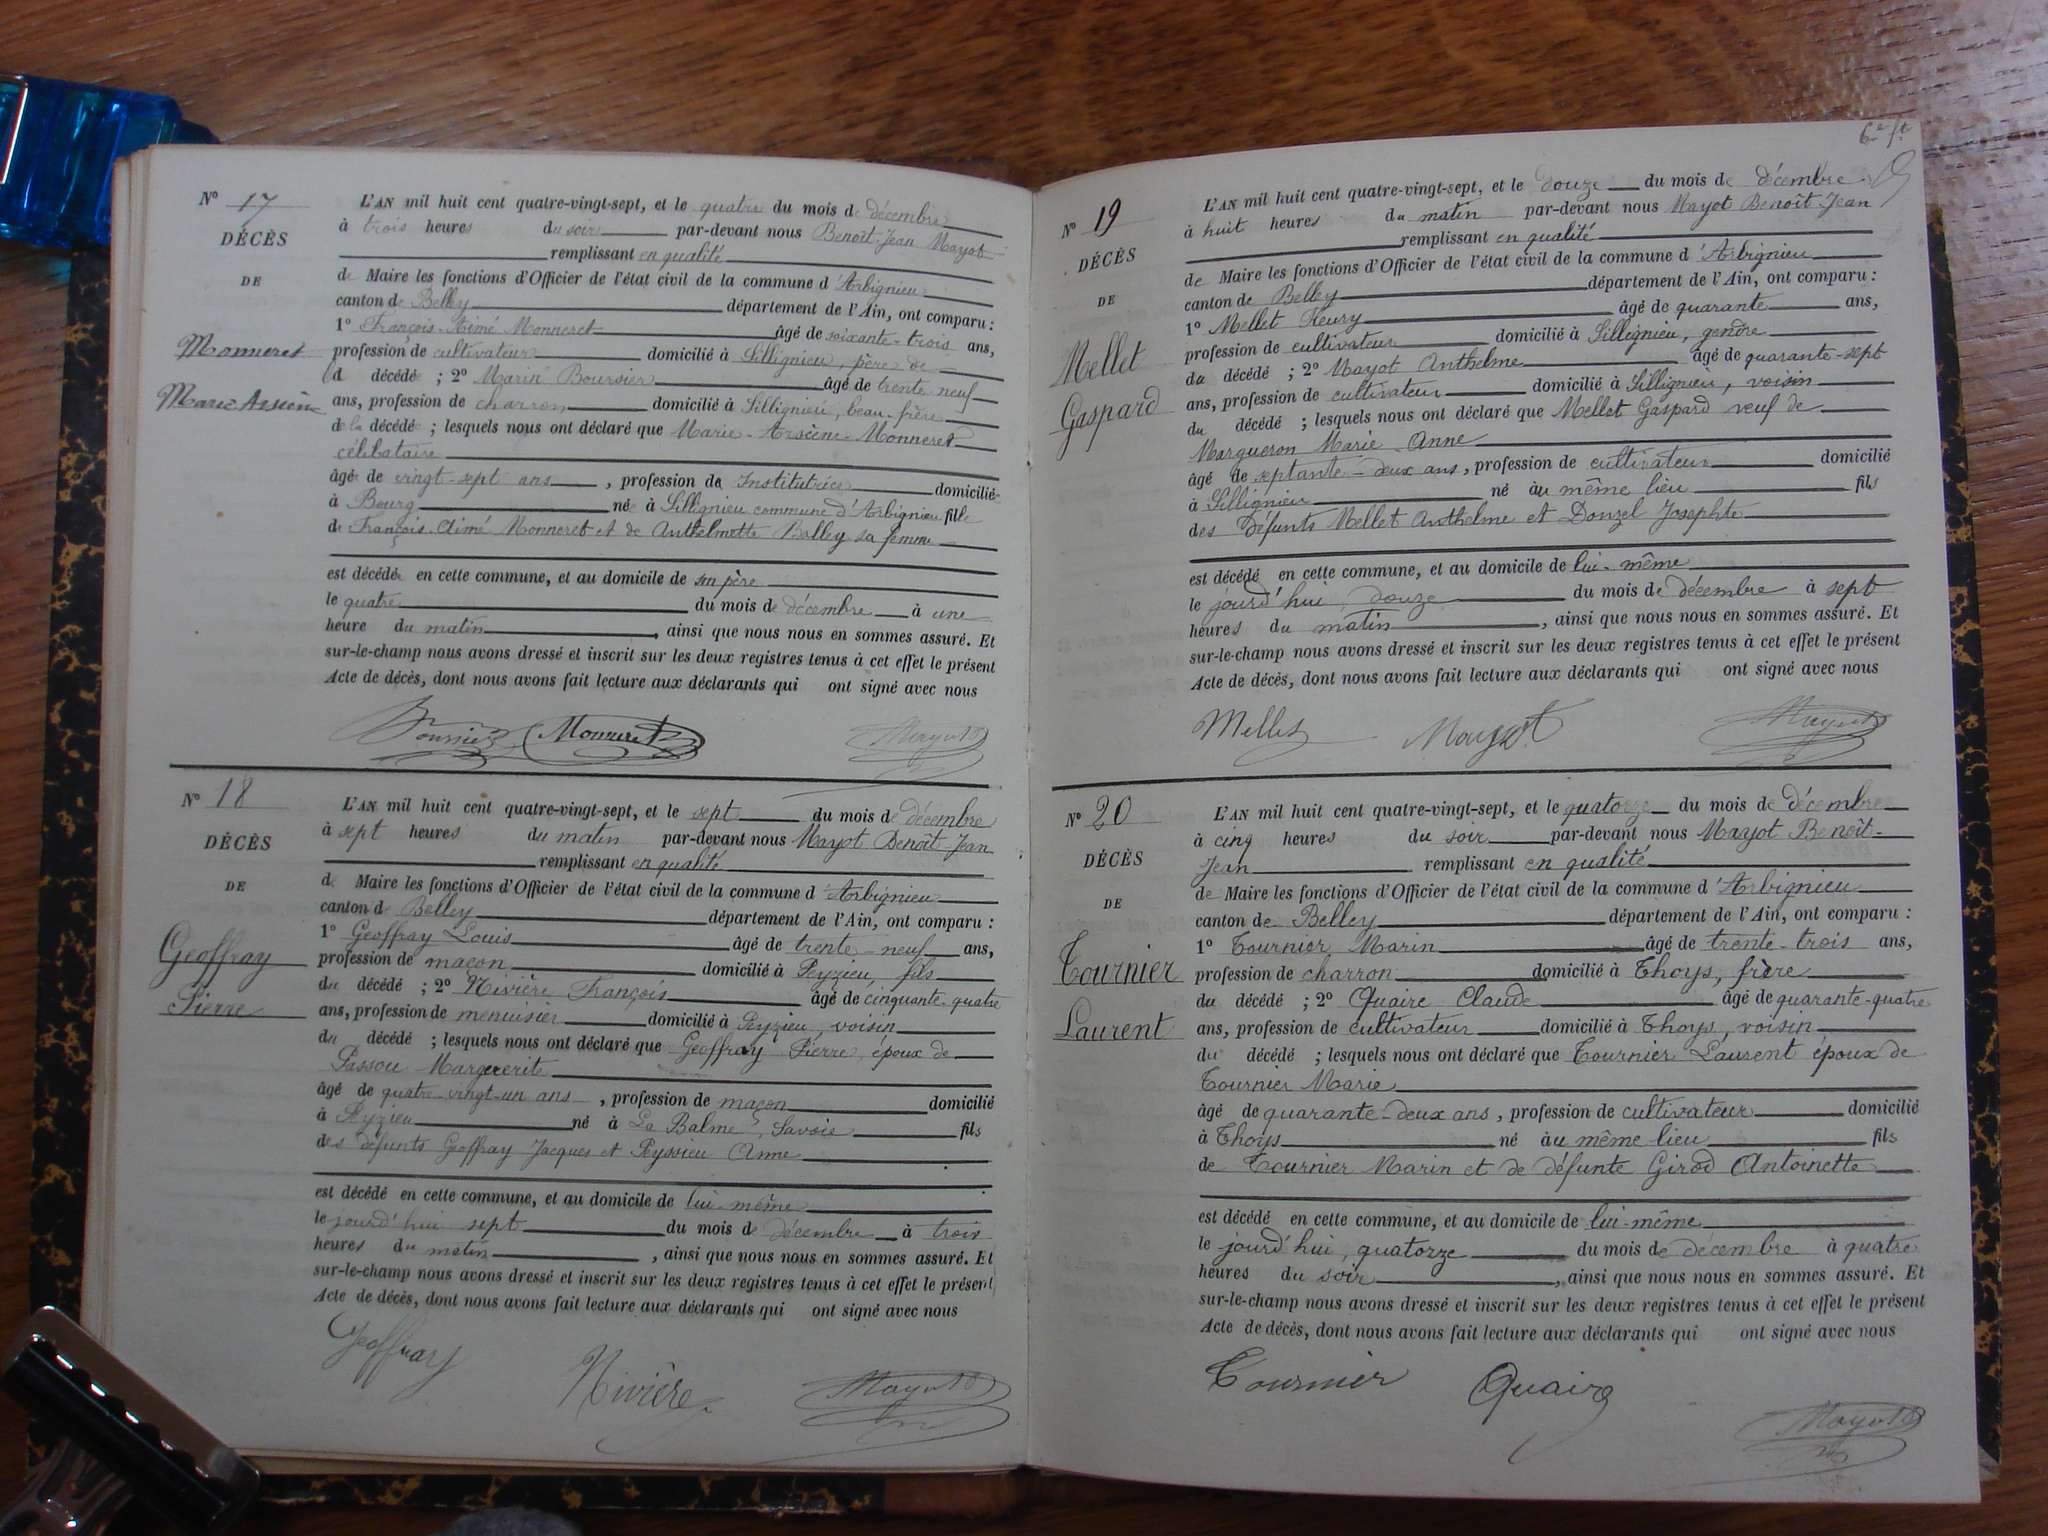 Nº 17
DÉCÈS
DE
Monneret
Marie Arsène
L'AN mil huit cent quatre-vingt-sept, et le quatre du mois de décembre
à trois heures du soir par-devant nous Benoît-Jean Mayot
remplissant en qualité
de Maire les fonctions d'Officier de l'état civil de la commune d'Arbignieu
canton de Belley département de l'Ain, ont comparu :
1º François-Aimé Monneret âgé de soixante-trois ans,
profession de cultivateur domicilié à Sillignieu, père de
la décédée ; 2º Marin Boursier âgé de trente neuf
ans, profession de charron domicilié à Sillignieu, beau-frère
de la décédée ; lesquels nous ont déclaré que Marie-Arsène-Monneret
célibataire
âgée de vingt-sept ans, profession de Institutrice domiciliée
à Bourg née à Sillignieu commune d'Arbignieu fille
de François-Aimé Monneret et de Anthelmette Balley sa femme
est décédée en cette commune, et au domicile de son père
le quatre du mois de décembre à une
heure du matin, ainsi que nous nous en sommes assuré. Et
sur-le-champ nous avons dressé et inscrit sur les deux registres tenus à cet effet le présent
Acte de décès, dont nous avons fait lecture aux déclarants qui ont signé avec nous
Boursier Monneret Mayot
Nº 18
DÉCÈS
DE
Geoffray
Pierre
L'AN mil huit cent quatre-vingt-sept, et le sept du mois de décembre
à sept heures du matin par-devant nous Mayot Benoît Jean
remplissant en qualité
de Maire les fonctions d'Officier de l'état civil de la commune d'Arbignieu
canton de Belley département de l'Ain, ont comparu :
1º Geoffray Louis âgé de trente-neuf ans,
profession de maçon domicilié à Peyzieu, fils
du décédé ; 2º Rivière François âgé de cinquante-quatre
ans, profession de menuisier domicilié à Peyzieu, voisin
du décédé ; lesquels nous ont déclaré que Geoffray Pierre, époux de
Passou Margererite
âgé de quatre-vingt-un ans, profession de maçon domicilié
à Peyzieu né à La Balme, Savoie fils
des défunts Geoffray Jacques et Peyssieu Anne
est décédé en cette commune, et au domicile de lui-même
le jourd'hui sept du mois de décembre à trois
heures du matin, ainsi que nous nous en sommes assuré. Et
sur-le-champ nous avons dressé et inscrit sur les deux registres tenus à cet effet le présent
Acte de décès, dont nous avons fait lecture aux déclarants qui ont signé avec nous
Geoffray Rivière Mayot
Nº 19
DÉCÈS
DE
Mellet
Gaspard
L'AN mil huit cent quatre-vingt-sept, et le douze du mois de décembre
à huit heures du matin par-devant nous Mayot Benoît-Jean
remplissant en qualité
de Maire les fonctions d'Officier de l'état civil de la commune d'Arbignieu
canton de Belley département de l'Ain, ont comparu :
1º Mellet Fleury âgé de quarante ans,
profession de cultivateur domicilié à Sillignieu, gendre
du décédé ; 2º Mayot Anthelme âgé de quarante-sept
ans, profession de cultivateur domicilié à Sillignieu, voisin
du décédé ; lesquels nous ont déclaré que Mellet Gaspard veuf de
Margueron Marie Anne
âgé de septante-deux ans, profession de cultivateur domicilié
à Sillignieu né au même lieu fils
des défunts Mellet Anthelme et Donzel Josephte
est décédé en cette commune, et au domicile de lui-même
le jourd'hui, douze du mois de décembre à sept
heures du matin, ainsi que nous nous en sommes assuré. Et
sur-le-champ nous avons dressé et inscrit sur les deux registres tenus à cet effet le présent
Acte de décès, dont nous avons fait lecture aux déclarants qui ont signé avec nous
Mellet Mayot Mayot
Nº 20
DÉCÈS
DE
Tournier
Laurent
L'AN mil huit cent quatre-vingt-sept, et le quatorze du mois de décembre
à cinq heures du soir par-devant nous Mayot Benoît-
Jean remplissant en qualité
de Maire les fonctions d'Officier de l'état civil de la commune d'Arbignieu
canton de Belley département de l'Ain, ont comparu :
1º Tournier Marin âgé de trente-trois ans,
profession de charron domicilié à Thoys, frère
du décédé ; 2º Quaire Claude âgé de quarante-quatre
ans, profession de cultivateur domicilié à Thoys, voisin
du décédé ; lesquels nous ont déclaré que Tournier Laurent époux de
Tournier Marie
âgé de quarante-deux ans, profession de cultivateur domicilié
à Thoys né au même lieu fils
de Tournier Marin et de défunte Girod Antoinette
est décédé en cette commune, et au domicile de lui-même
le jourd'hui, quatorze du mois de décembre à quatre
heures du soir, ainsi que nous nous en sommes assuré. Et
sur-le-champ nous avons dressé et inscrit sur les deux registres tenus à cet effet le présent
Acte de décès, dont nous avons fait lecture aux déclarants qui ont signé avec nous
Tournier Quaire Mayot